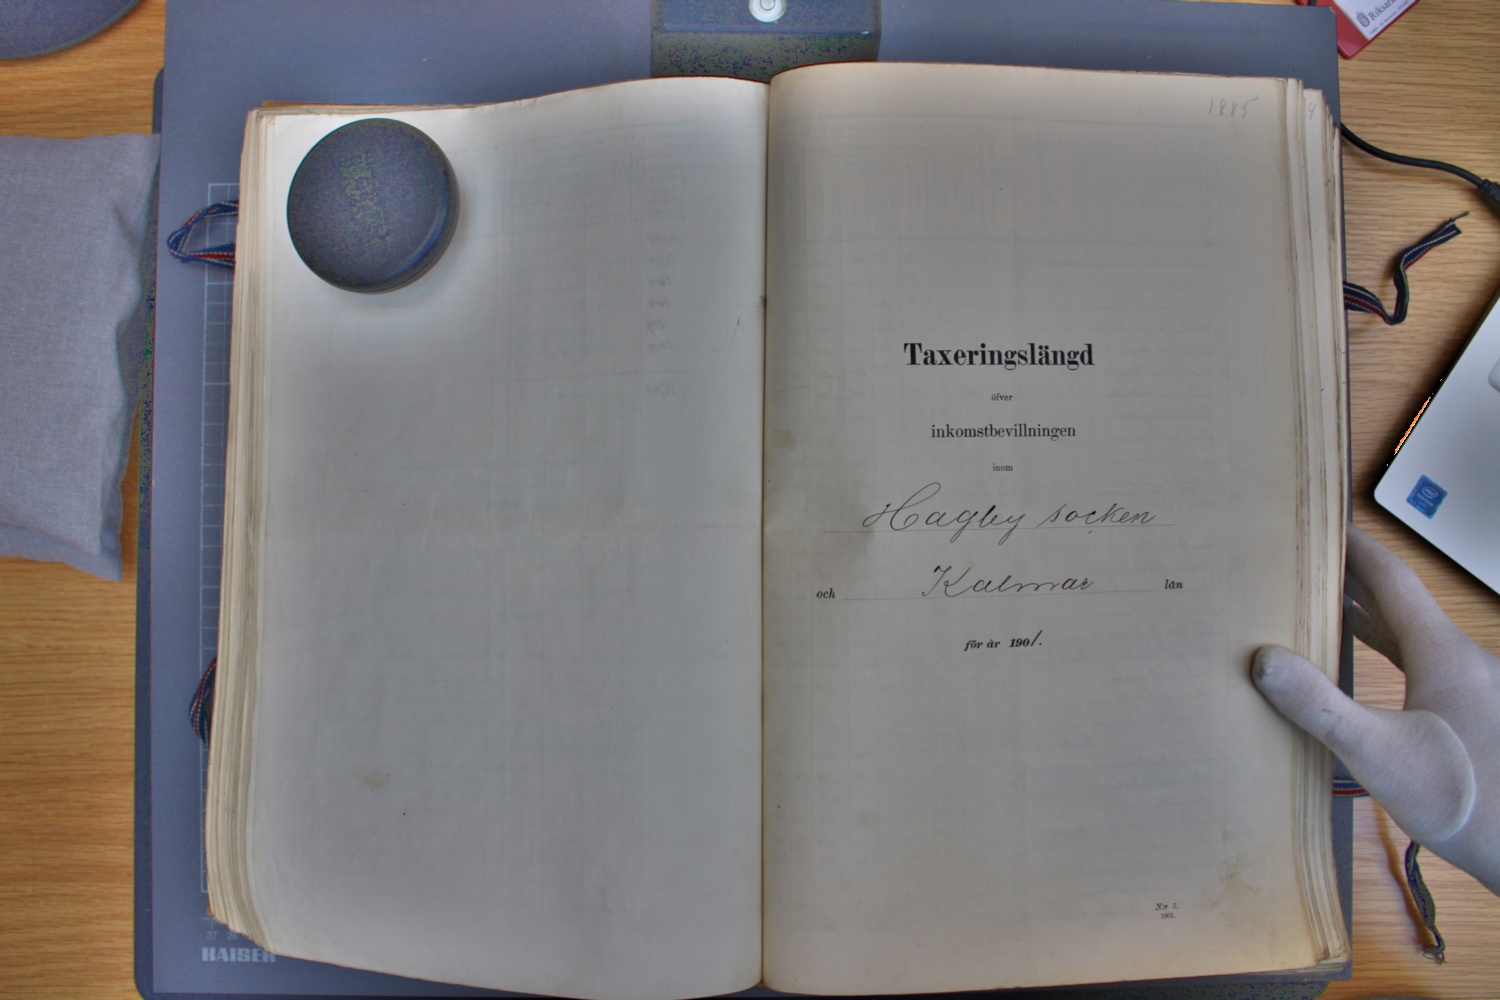 1885
Taxeringslängd
öfver
inkomstbevillningen
inom
Hagby socken
och Kalmar län
för år 1901.
N:r 5.
1901.
27
KAISER